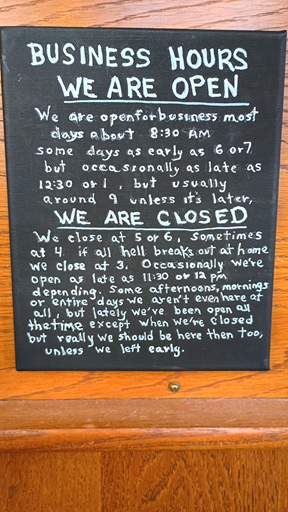 BUSINESS HOURS
WE ARE OPEN
We are openforbusiness most
days about 8:30 AM
some days as early as 6 or7
but occassionally as late as
12:30 or 1, but usually
around 9 unless it's later,
WE ARE CLOSED
We close at 5 or 6, sometimes
at 4. if all hell breaks out at home
we close at 3. Occasionally we're
open as late as 11:30 or 12 pm
depending. Some afternoons, mornings
or entire days we aren't even here at
all, but lately we've been open all
thetime except when we're closed
but really we should be here then too,
unless we left early.